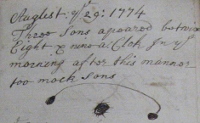 Auglest: ye 29: 1774
Three Sons apeared betwixt
Eight & nine a Clck In ye
morning after this manner
too mock Sons